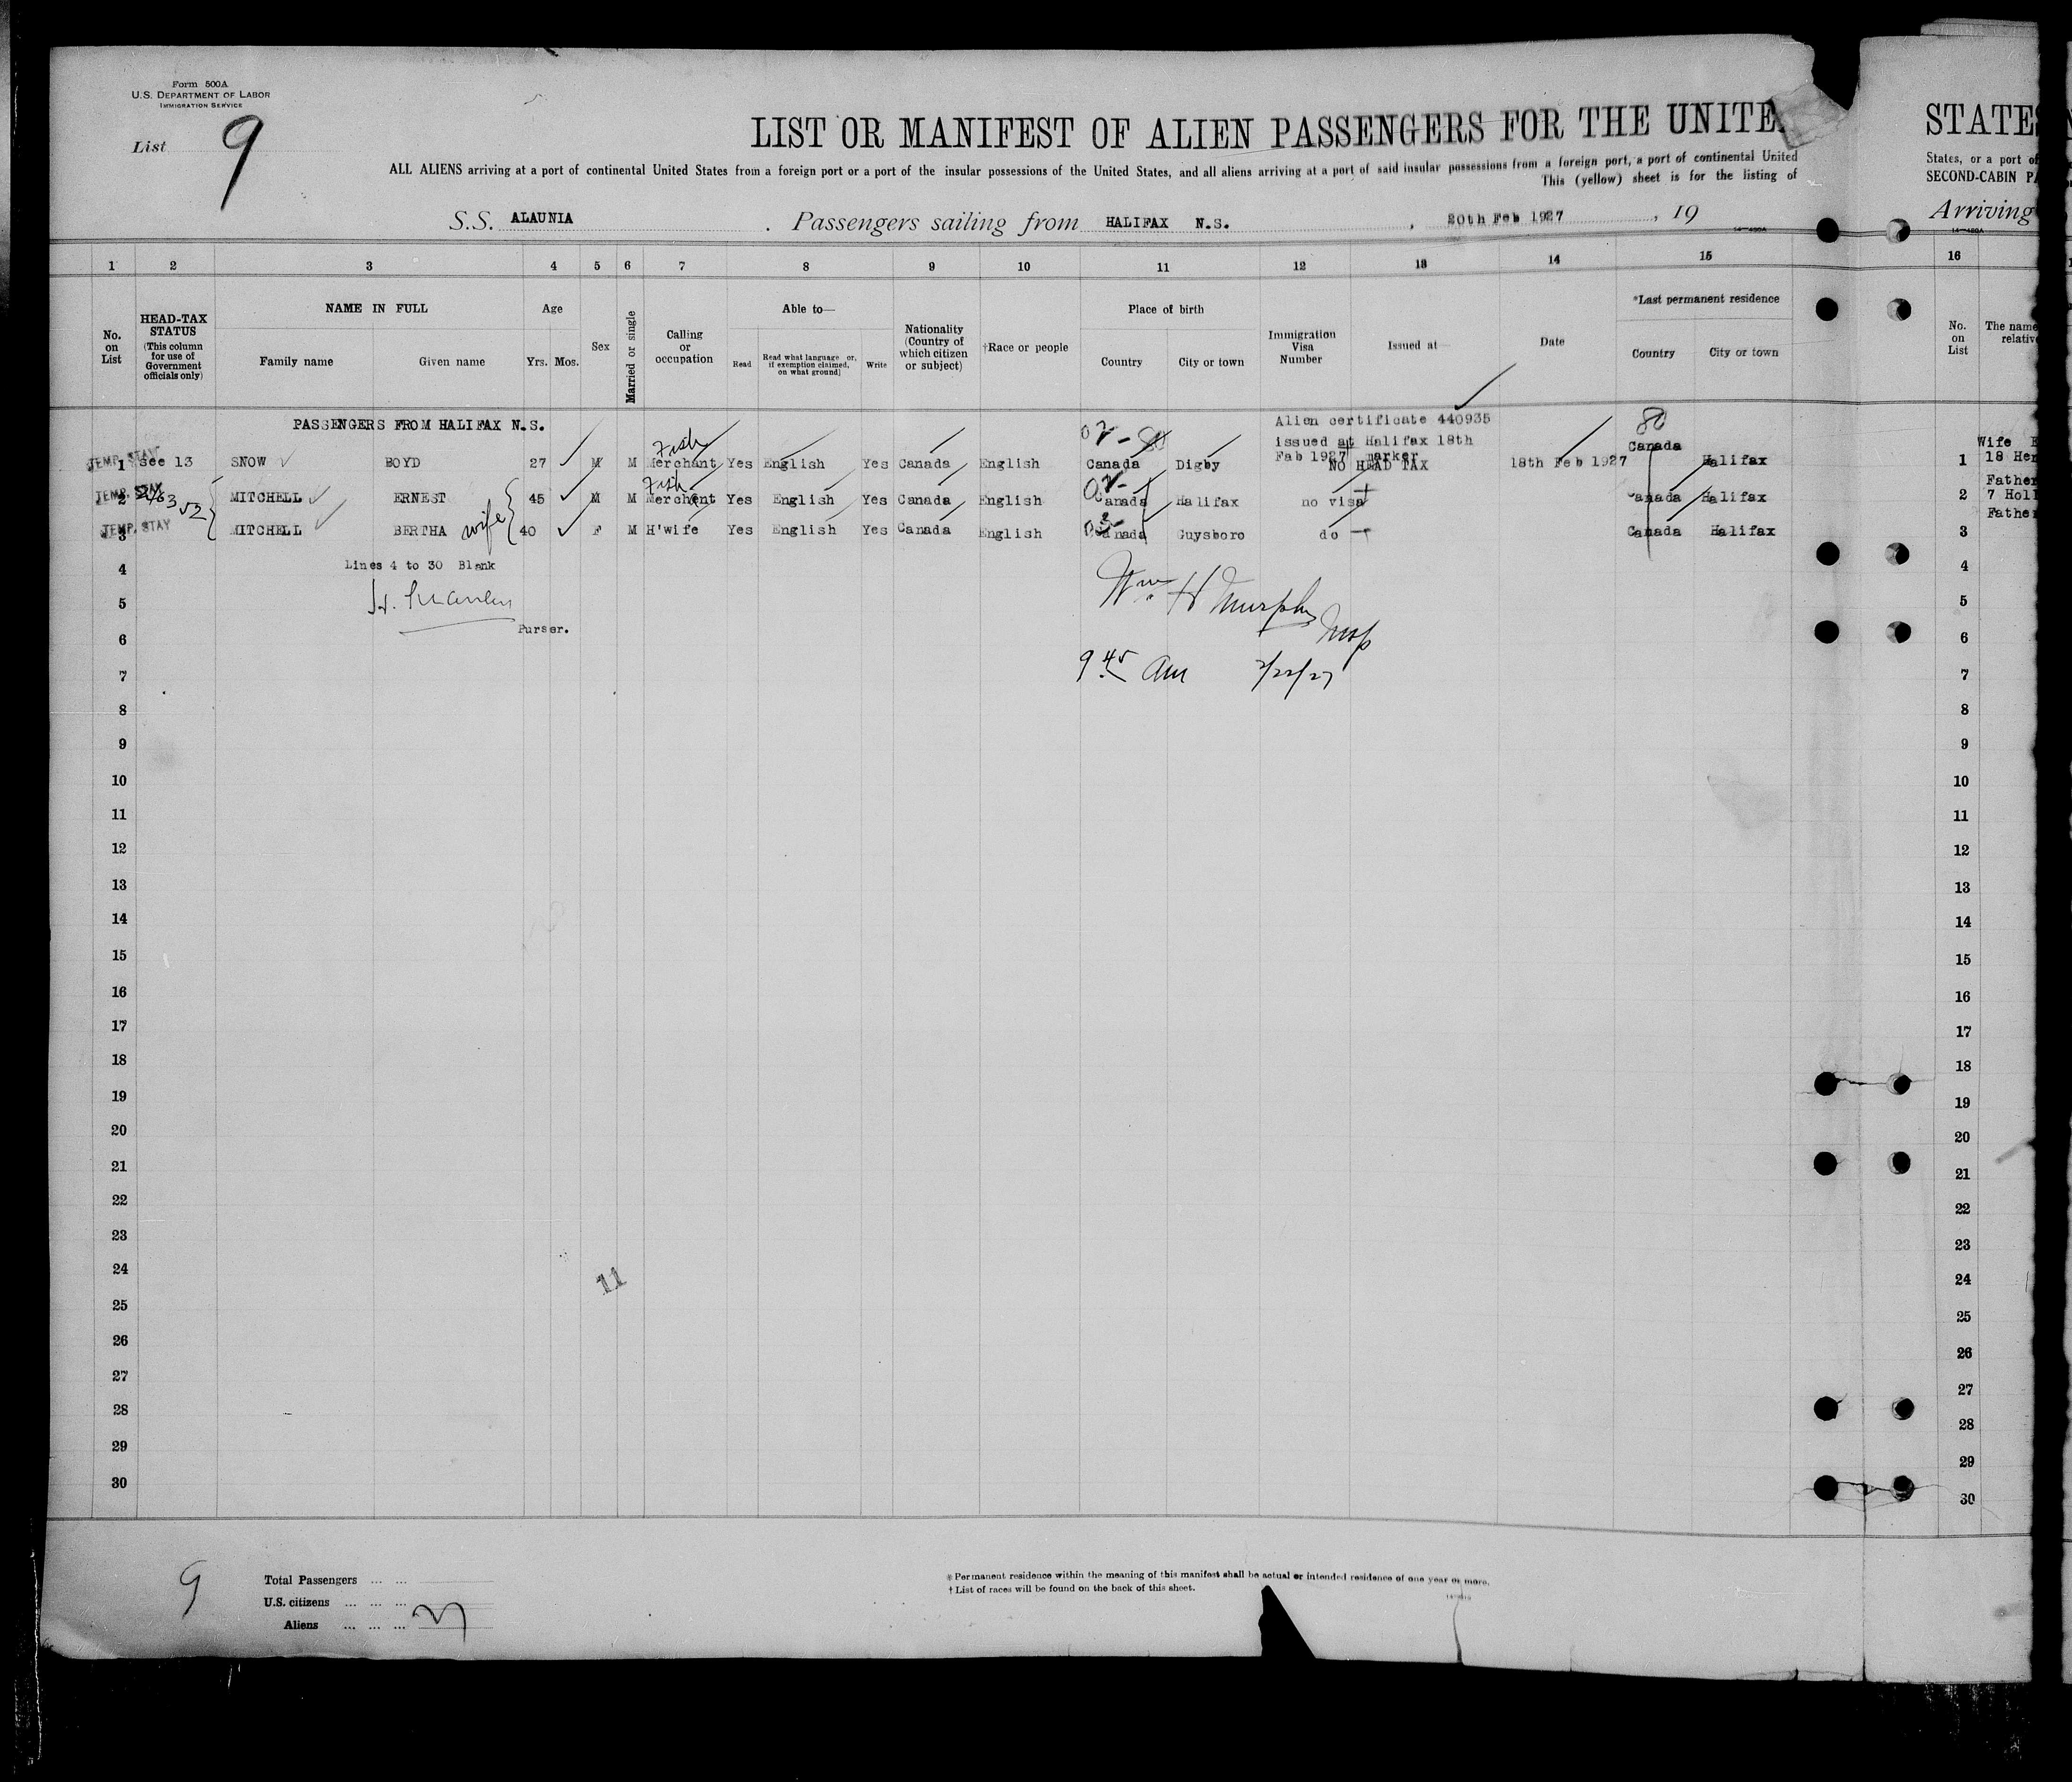 Form 500A
U.S. DEPARTMENT OF LABOR
IMMIGRATION SERVICE
List 9
LIST OR MANIFEST OF ALIEN PASSENGERS FOR THE UNITE
STATES
ALL ALIENS arriving at a port of continental United States from a foreign port or a port of the insular possessions of the United States, and all aliens arriving at a port of said insular possessions from a foreign port, a port of continental United
States, or a port of
This (yellow) sheet is for the listing of
SECOND-CABIN PA
S.S. ALAUNIA . Passengers sailing from HALIFAX N.S. , 20th Feb 1927 , 19
Arriving
1 2 3 4 5 6 7 8 9 10 11 12 13 14 15 16
No. on List
HEAD-TAX STATUS (This column for use of Government officials only)
NAME IN FULL
Family name Given name
Age
Yrs. Mos.
Sex
Married or single
Calling or occupation
Able to—
Read Read what language [or, if exemption claimed, on what ground] Write
Nationality (Country of which citizen or subject)
†Race or people
Place of birth
Country City or town
Immigration Visa Number
Issued at—
Date
*Last permanent residence
Country City or town
No. on List
The name
relative
PASSENGERS FROM HALIFAX N.S.
Alien certificate 440935
issued at Halifax 18th
Feb 1927 marker
80
02 - 80
Fish
TEMP. STAY
1 see 13 SNOW BOYD 27 M M Merchant Yes English Yes Canada English Canada Digby NO HEAD TAX 18th Feb 1927 Canada Halifax 1 Wife
18 Her
Fish
TEMP. STAY
2 MITCHELL ERNEST 45 M M Merchant Yes English Yes Canada English Canada Halifax no visa Canada Halifax 2 Father
7 Holl
TEMP. STAY
3 MITCHELL BERTHA wife 40 F M H'wife Yes English Yes Canada English Canada Guysboro do Canada Halifax 3 Father
Lines 4 to 30 Blank
Purser.
Wm H Murphy
Insp
9 45 am 2/22/27
4 4
5 5
6 6
7 7
8 8
9 9
10 10
11 11
12 12
13 13
14 14
15 15
16 16
17 17
18 18
19 19
20 20
21 21
22 22
23 23
24 24
11
25 25
26 26
27 27
28 28
29 29
30 30
9
Total Passengers ... ...
U.S. citizens ... ... ...
Aliens ... ... ...
*Permanent residence within the meaning of this manifest shall be actual or intended residence of one year or more.
†List of races will be found on the back of this sheet.